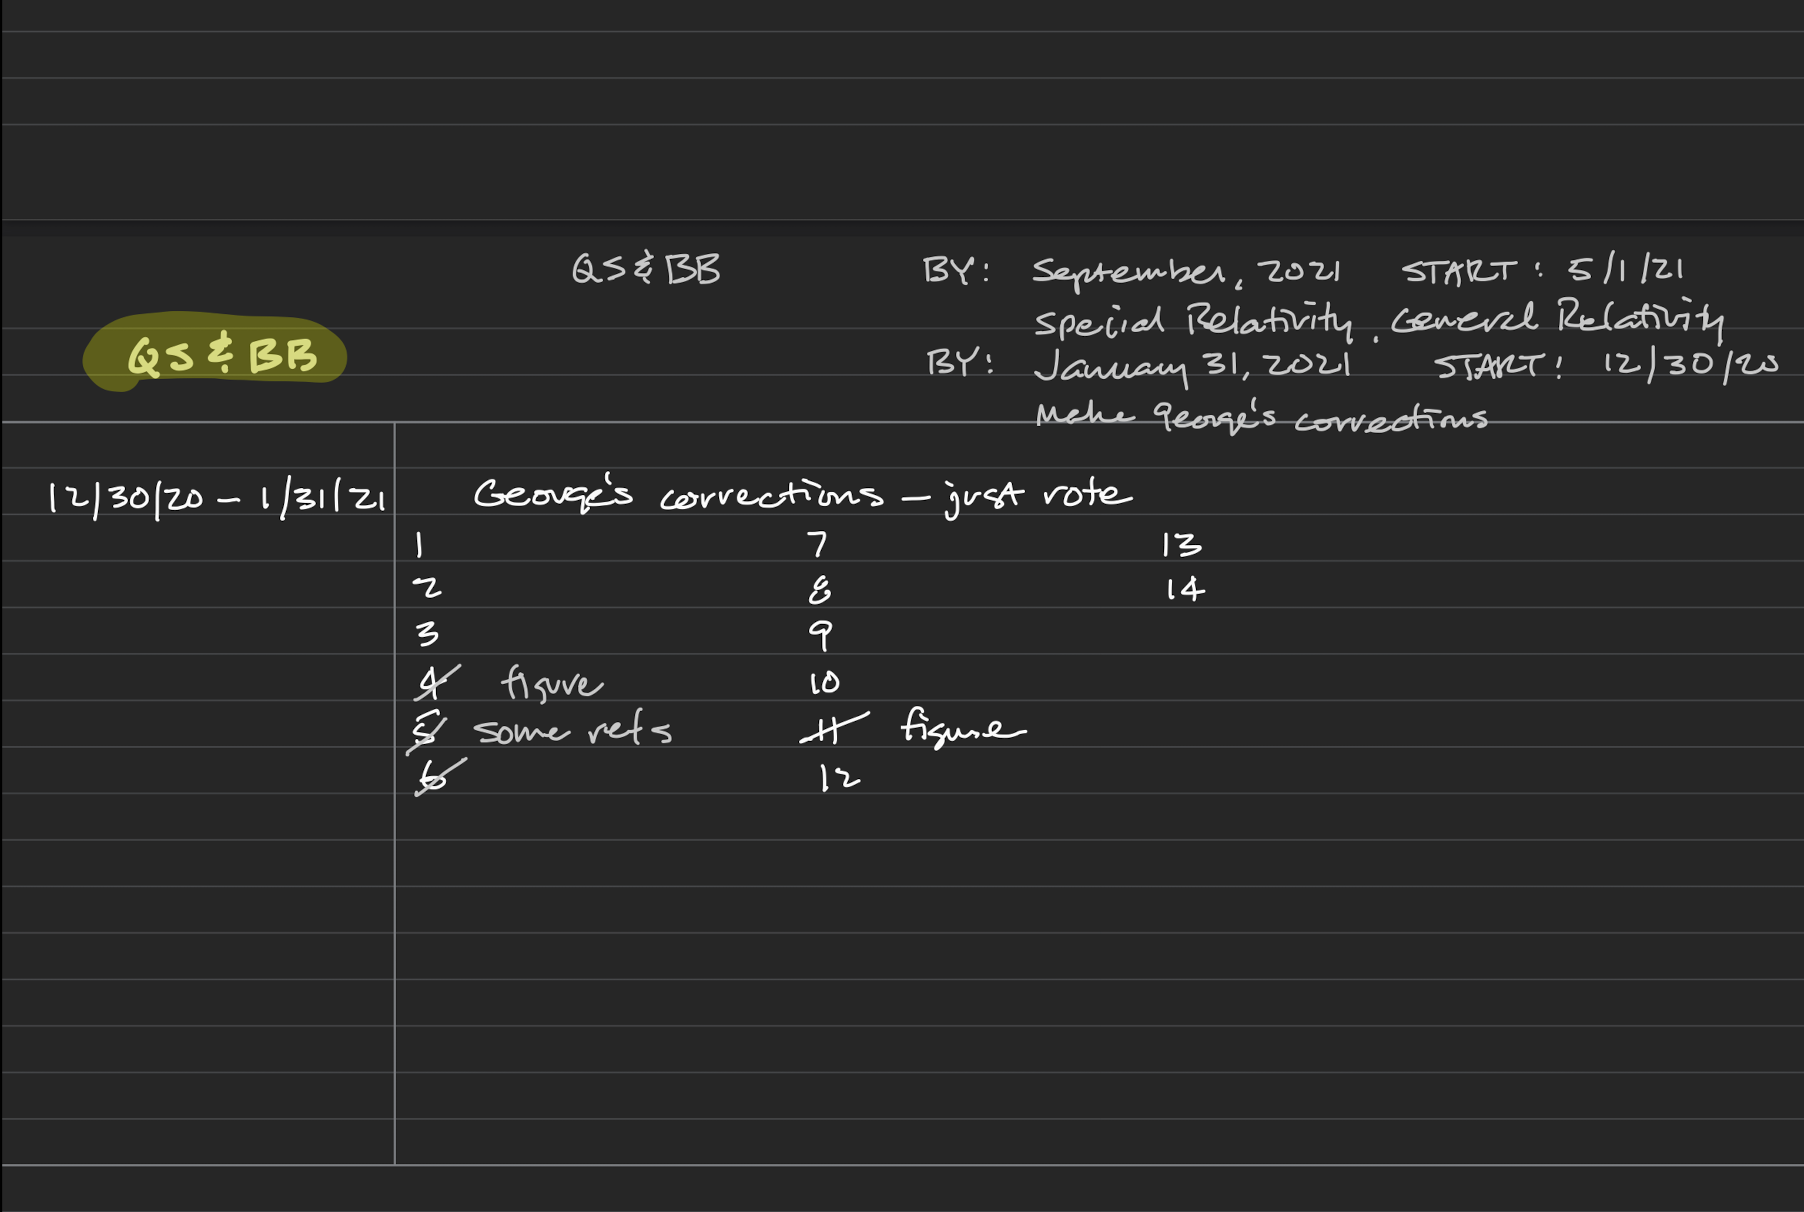 QS & BB BY: September, 2021 START: 5/1/21
Special Relativity, General Relativity
QS & BB
BY: January 31, 2021 START: 12/30/20
Make George's corrections
12/30/20 - 1/31/21 George's corrections - just rote
1 7 13
2 8 14
3 9
4 figure 10
5 some refs 11 figure
6 12